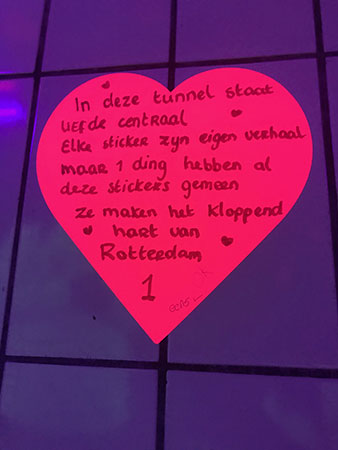 In deze tunnel staat
liefde centraal
Elke sticker zijn eigen verhaal
maar 1 ding hebben al
deze stickers gemeen
ze maken het kloppend
hart van
Rotterdam
1